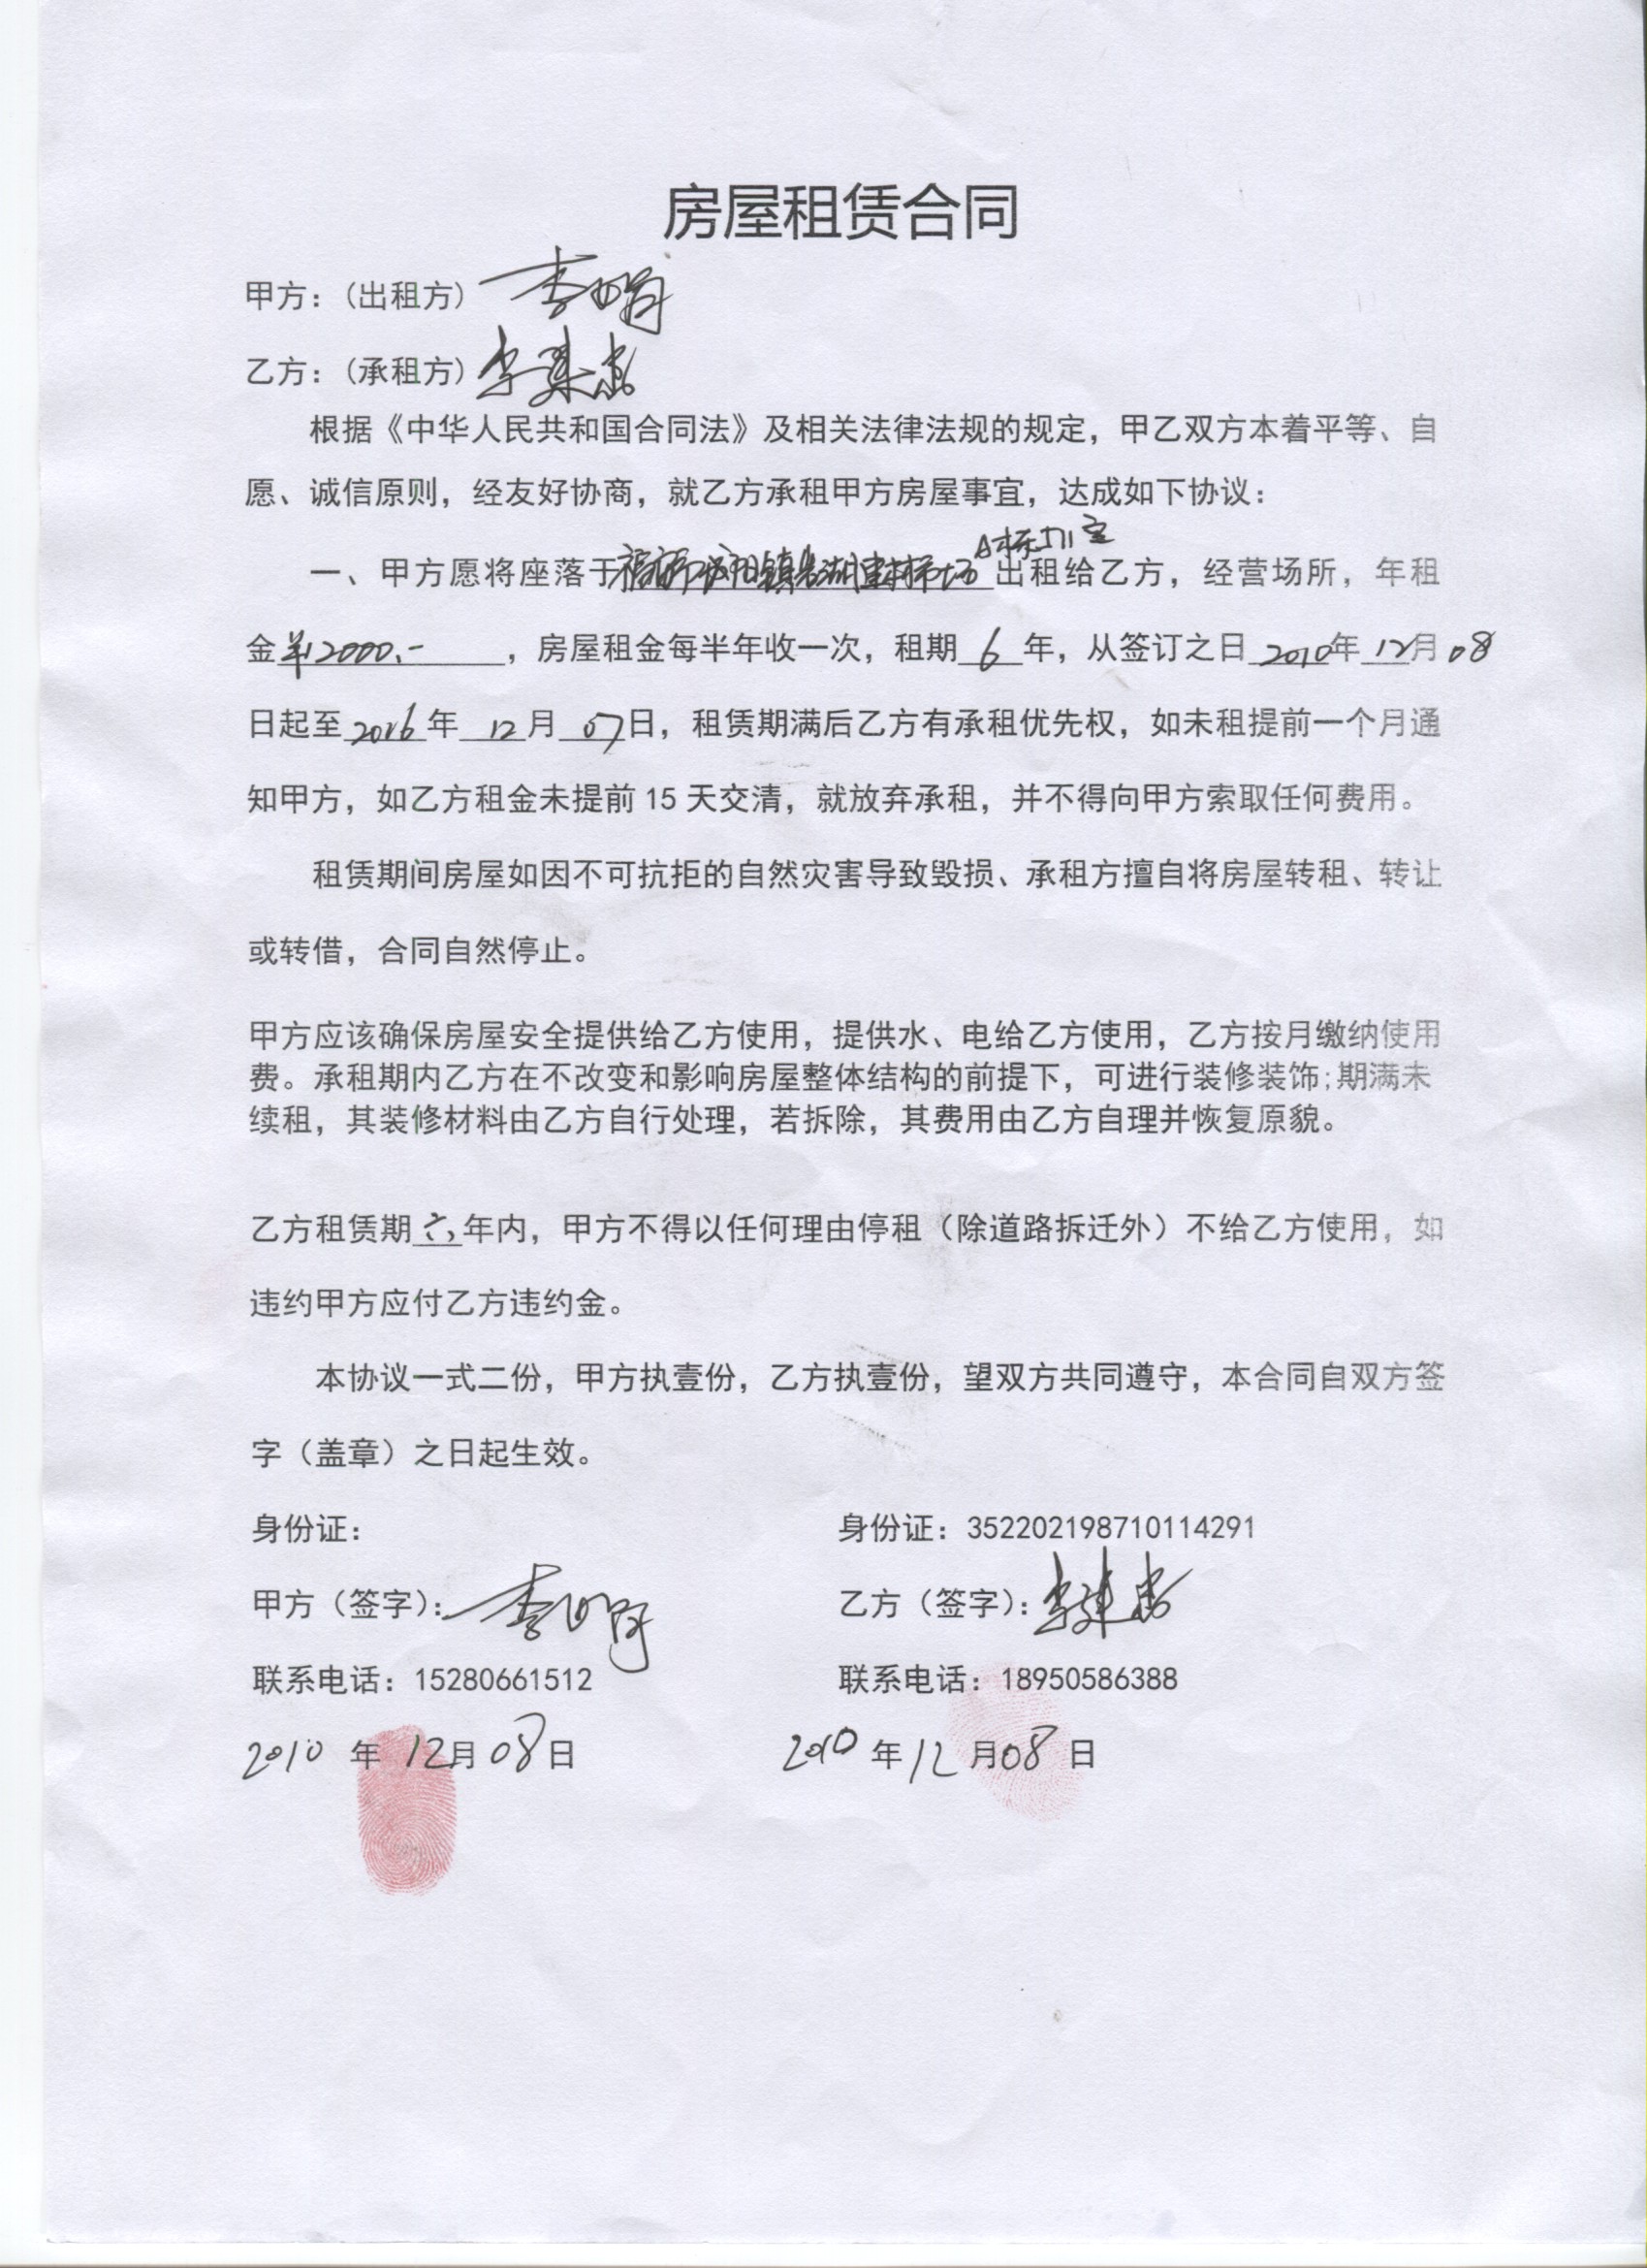 房屋租赁合同
甲方：(出租方)
乙方：(承租方) 李
根据《中华人民共和国合同法》及相关法律法规的规定，甲乙双方本着平等、自
愿、诚信原则，经友好协商，就乙方承租甲方房屋事宜，达成如下协议：
一、甲方愿将座落于 出租给乙方，经营场所，年租
金¥12000.-，房屋租金每半年收一次，租期6年，从签订之日2010年12月08
日起至2016年12月07日，租赁期满后乙方有承租优先权，如未租提前一个月通
知甲方，如乙方租金未提前 15 天交清，就放弃承租，并不得向甲方索取任何费用。
租赁期间房屋如因不可抗拒的自然灾害导致毁损、承租方擅自将房屋转租、转让
或转借，合同自然停止。
甲方应该确保房屋安全提供给乙方使用，提供水、电给乙方使用，乙方按月缴纳使用
费。承租期内乙方在不改变和影响房屋整体结构的前提下，可进行装修装饰;期满未
续租，其装修材料由乙方自行处理，若拆除，其费用由乙方自理并恢复原貌。
乙方租赁期六年内，甲方不得以任何理由停租（除道路拆迁外）不给乙方使用，如
违约甲方应付乙方违约金。
本协议一式二份，甲方执壹份，乙方执壹份，望双方共同遵守，本合同自双方签
字（盖章）之日起生效。
身份证： 身份证：352202198710114291
甲方（签字）： 乙方（签字）：李
联系电话：15280661512 联系电话：18950586388
2010 年 12月 08日 2010 年 12 月08 日